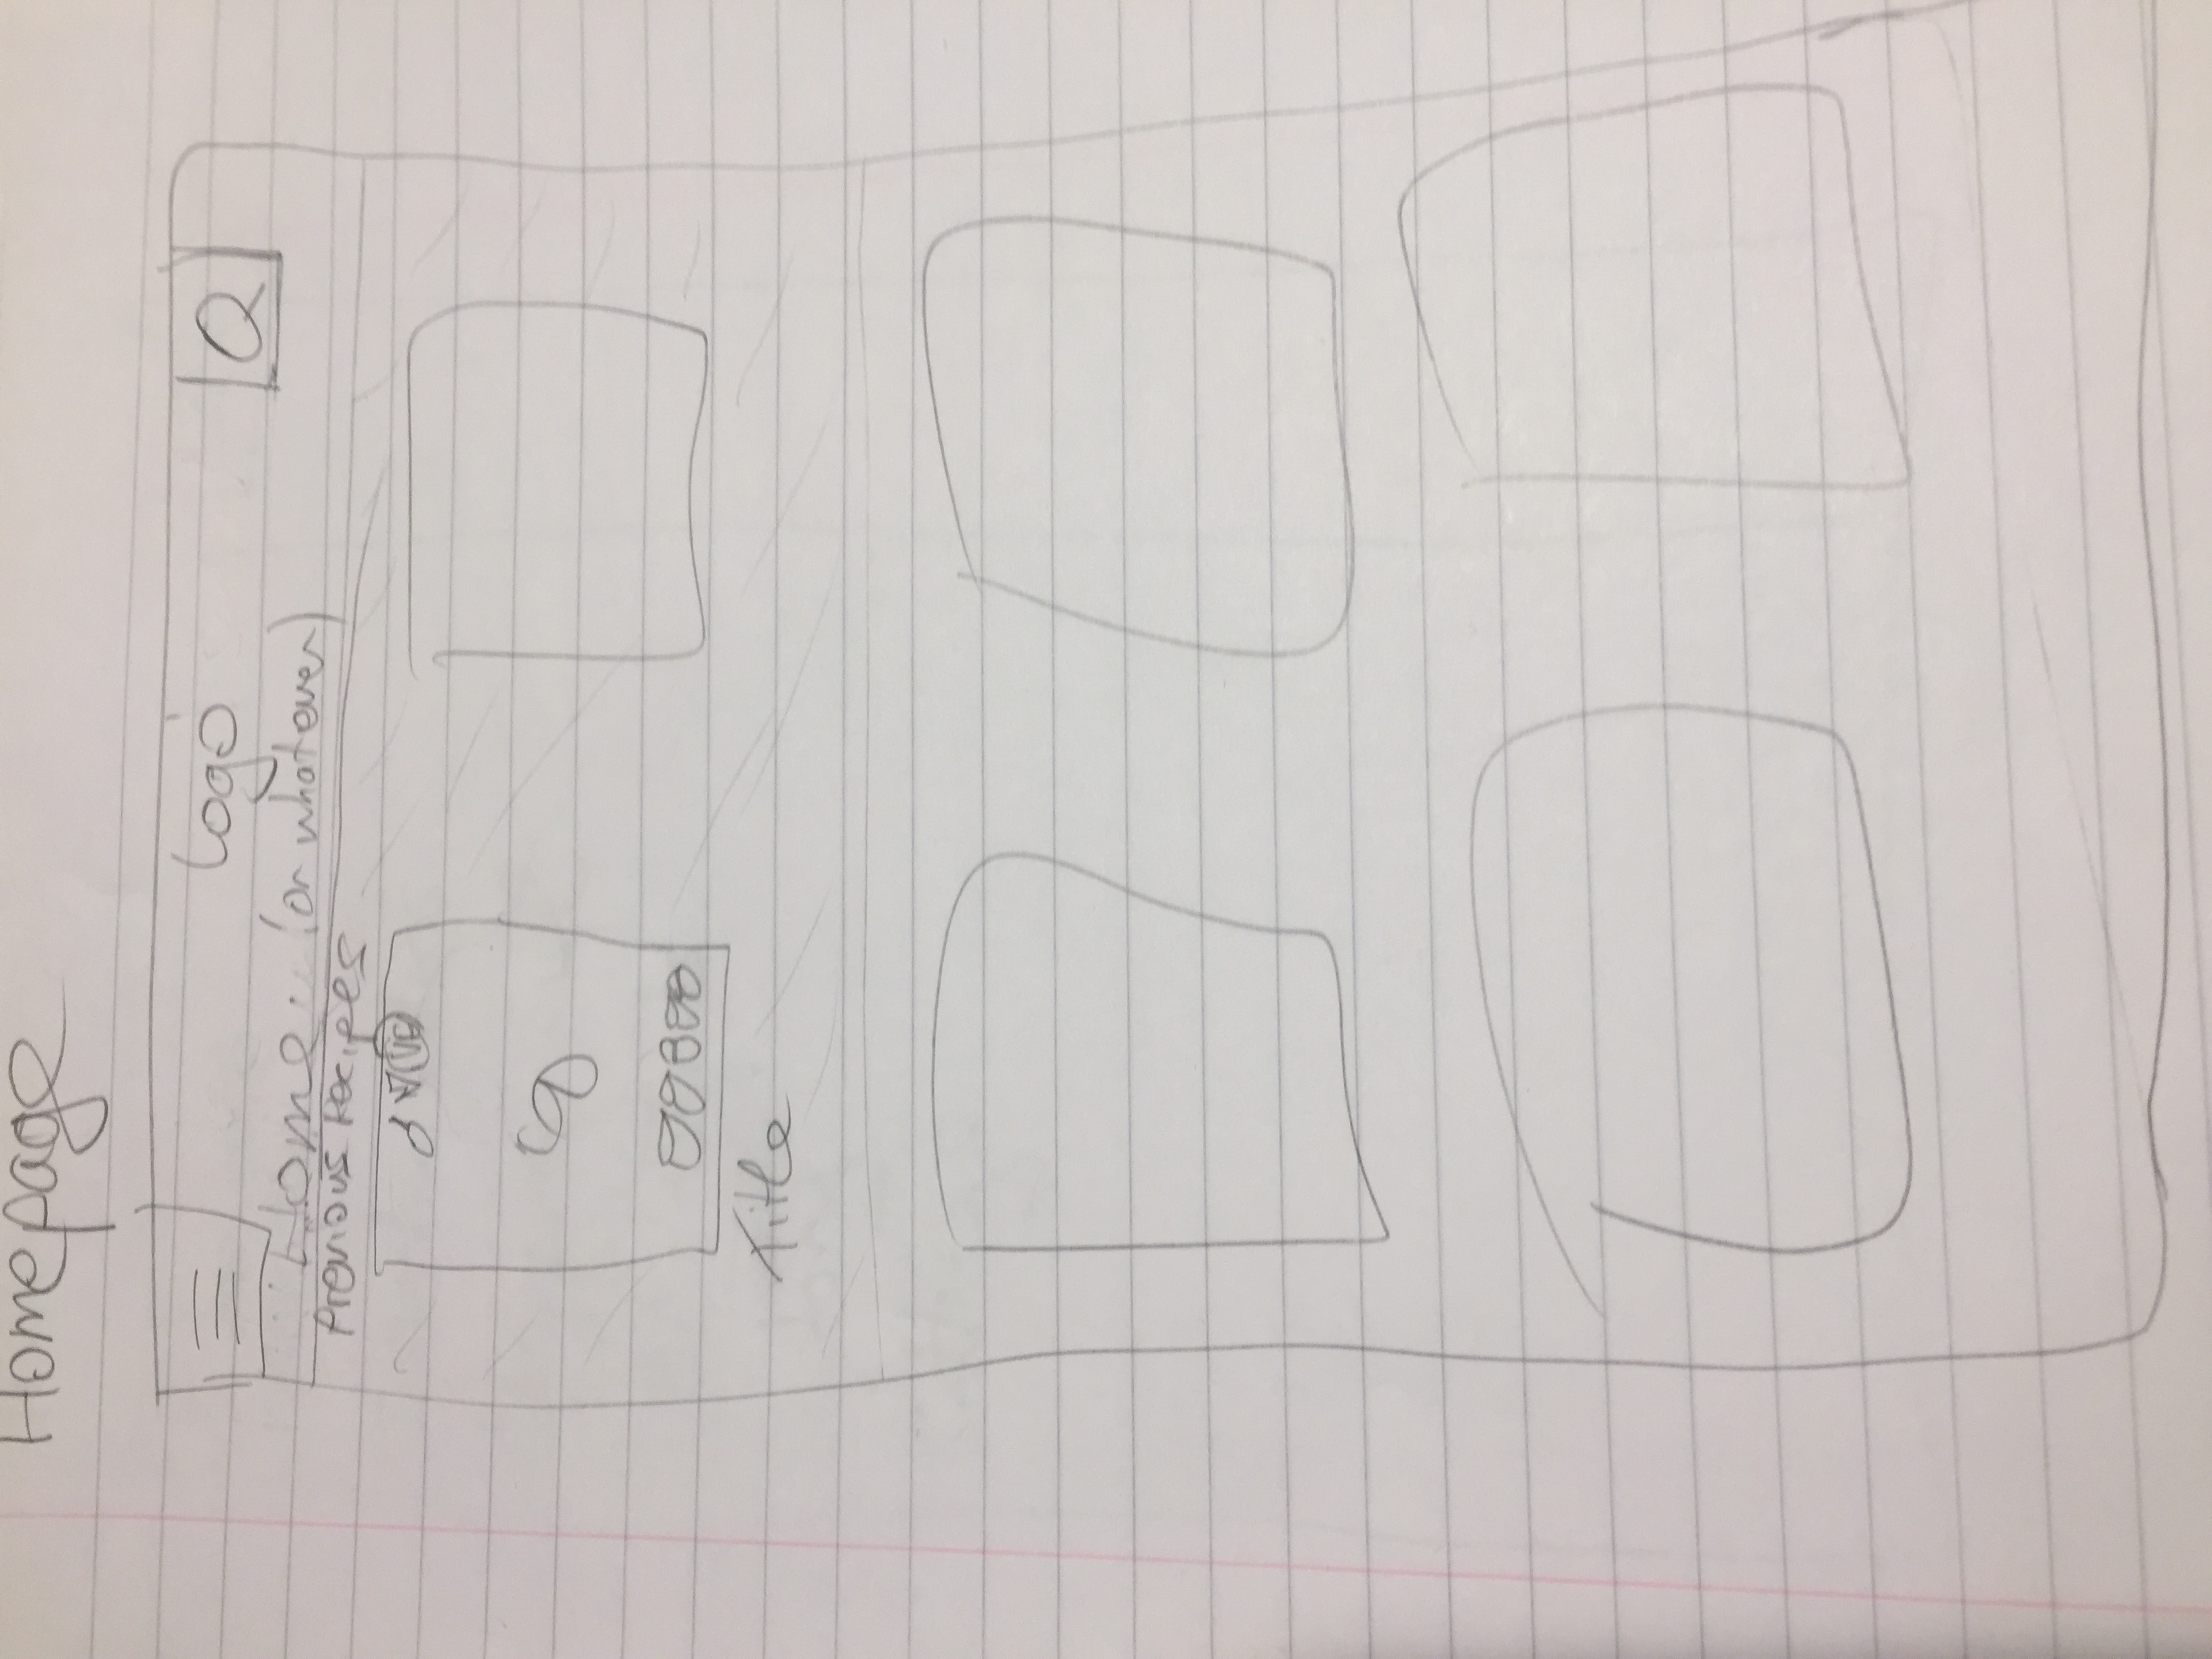 Homepage
Logo
Home (or whatever)
Previous Recipes
Title